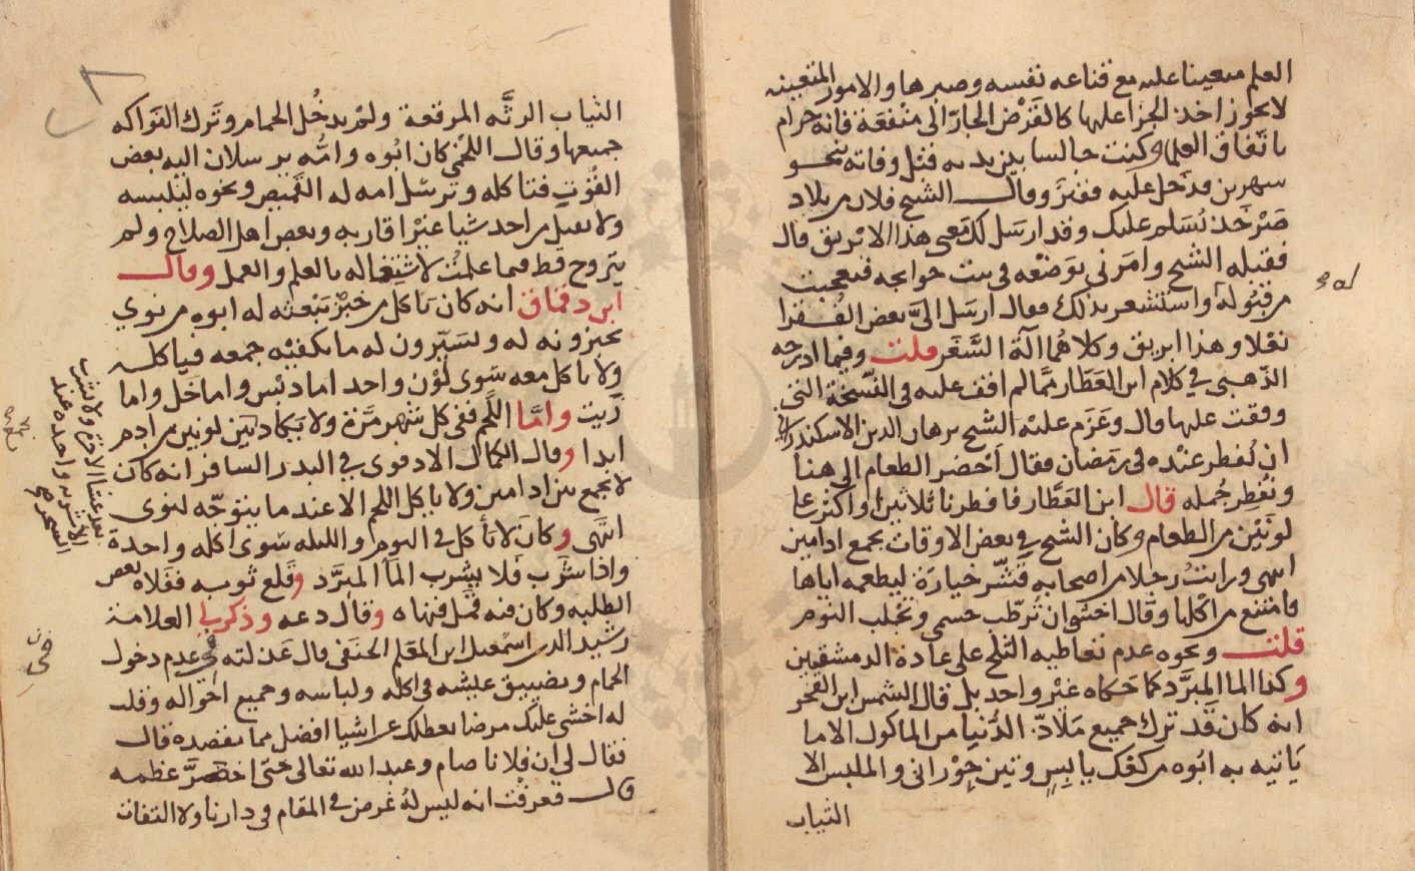 العلم متعينا عليه مع قناعه نفسه وصبرها والامور المتعينه
لا يجوز اخذ الجزا عليها كالقرض الجار الى منفعة فانه حرام
باتفاق العلما وكنت جالسا بين يديه قبل وفاته بنحو
شهرين فدخل عليه فقير وقال الشيخ فلان من بلاد
صرخد يسلم عليك وقد ارسل لك معي هذا الابريق قال
فقبله الشيخ وامرني بوضعه في بيت حوايجه فتعجبت
من قبوله واستشعر بذلك فقال ارسل الي بعض الفقرا
نعلا وهذا ابريق وكلاهما آلة السفر قلت وفيما ادرجه
الذهبي في كلام ابن العطار مما لم اقف عليه في النسخة التي
وقفت عليها قال وعزم عليه الشيخ برهان الدين الاسكندراني
ان يفطر عنده في رمضان فقال احضر الطعام الى هنا
ونفطر جمله قال ابن العطار فافطرنا ثلاثتنا او اكثر على
لونين من الطعام وكان الشيخ في بعض الاوقات يجمع ادامين
انتهى ورايت رجلا من اصحابه قشر خيارة ليطعمه اياها
فامتنع من اكلها وقال اخشى ان ترطب جسمي وتجلب النوم
قلت ونحوه عدم تعاطيه الثلج على عادة الدمشقيين
وكذا الما المبرد كما حكاه غير واحد بل قال الشمس ابن الفخر
انه كان قد ترك جميع ملاذ الدنيا من الماكول الا ما
ياتيه به ابوه من كعك يابس وتين حوراني والملبس الا
الثياب
الثياب الرثة المرقعة ولم يدخل الحمام وترك الفواكه
جميعها وقال اللخمي كان ابوه وامه يرسلان اليه بعض
القوت فتاكله وترسل امه له القميص ونحوه ليلبسه
ولا يقبل من احد شيا غير اقاربه وبعض اهل الصلاح ولم
يتزوج قط فيما علمت لاشتغاله بالعلم والعمل وقال
ابن دقماق انه كان ياكل من خبز يبعثه له ابوه من نوي
يخبزونه له ويسيرون له ما يكفيه جمعه فياكله
ولا ياكل معه سوى لون واحد اما دبس واما خل واما
زيت واما اللحم ففي كل شهر مرة ولا يكاد بين لونين من ادم
ابدا وقال الكمال الادفوي في البدر السافر انه كان
لا يجمع بين ادامين ولا ياكل اللحم الا عند ما يتوجه لنوى
انتهى وكان لا يأكل في اليوم والليله سوى اكله واحدة
واذا شرب فلا يشرب الما المبرد وقلع ثوبه ففلاه بعض
الطلبه وكان فيه قمل فنهاه وقال دعه وذكر لي العلامة
رشيد الدين اسمعيل ابن المعلم الحنفي قال عذلته في عدم دخول
الحمام وتضييق عيشه في اكله ولباسه وجميع احواله وقلت
له اخشى عليك مرضا يعطلك عن اشيا افضل مما تقصده قال
فقال لي ان فلانا صام وعبد الله تعالى حتى اخضر عظمه
قال فعرفت انه ليس له غرض في المقام في دارنا ولا التفات
بعد عشا الاخرة ولا يشرب
الا شربه واحدة عند
السحر صح